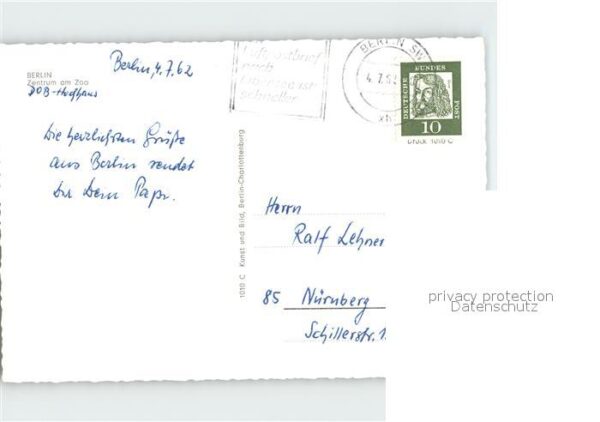 Berlin, 4.7.62
BERLIN
Zentrum am Zoo
DOB-Hochhaus
Die herzlichsten Grüße
aus Berlin sendet
Dir Dein Papi.
Luftpostbrief
nach
ist
schneller
BERLIN SW
4.7.62
DEUTSCHE BUNDES POST
10
Druck 1010 C
1010 C Kunst und Bild, Berlin-Charlottenburg
Herrn
Ralf Lehner
85 Nürnberg
Schillerstr. 1
privacy protection
Datenschutz